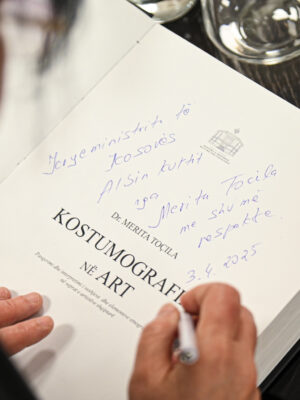 Kryeministrit të
Kosovës
Albin Kurtit
nga
Merita Toçila
me shumë
respekte.
3.4.2025
Dr. MERITA TOÇILA
KOSTUMOGRAFI
NË ART